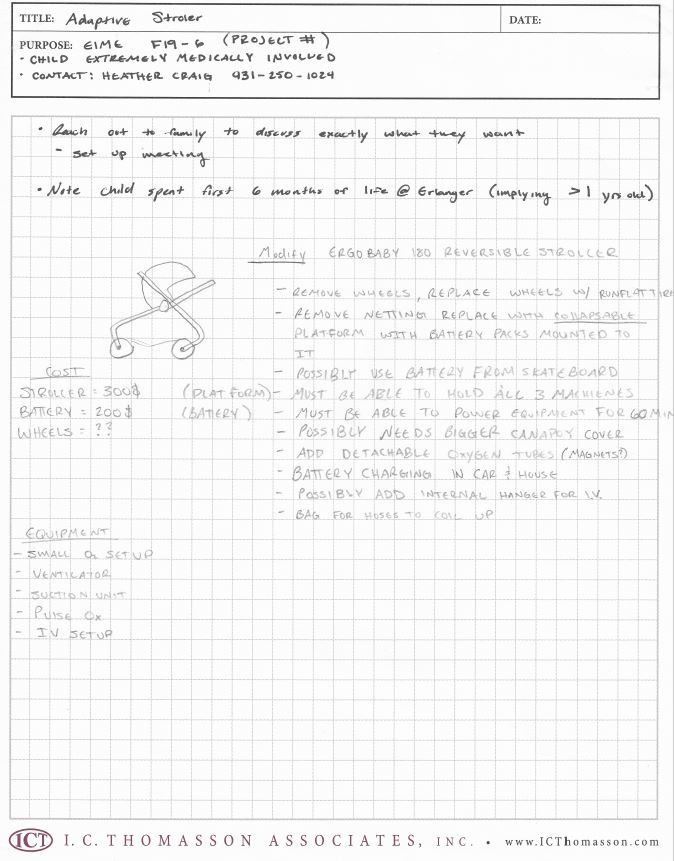 TITLE: Adaptive Stroler
DATE:
PURPOSE: EIME F19-6 (PROJECT #)
· CHILD EXTREMELY MEDICALLY INVOLVED
· CONTACT: HEATHER CRAIG 931-250-1024
· Reach out to family to discuss exactly what they want
- set up meeting
· Note child spent first 6 months of life @ Erlanger (implying >1 yrs old)
Modify ERGOBABY 180 REVERSIBLE STROLLER
- REMOVE WHEELS, REPLACE WHEELS W/ RUNFLAT TIRE
- REMOVE NETTING REPLACE WITH COLLAPSABLE
PLATFORM WITH BATTERY PACKS MOUNTED TO
IT
- POSSIBLY USE BATTERY FROM SKATEBOARD
(PLATFORM) - MUST BE ABLE TO HOLD ALL 3 MACHIENES
(BATTERY) - MUST BE ABLE TO POWER EQUIPMENT FOR 60 MIN
- POSSIBLY NEEDS BIGGER CANAPOY COVER
- ADD DETACHABLE OXYGEN TUBES (MAGNETS?)
- BATTERY CHARGING IN CAR & HOUSE
- POSSIBLY ADD INTERNAL HANGER FOR I.V.
- BAG FOR HOSES TO COIL UP
COST
STROLLER = 300$
BATTERY = 200$
WHEELS = ??
EQUIPMENT
- SMALL O2 SETUP
- VENTILATOR
- SUCTION UNIT
- PULSE OX
- IV SETUP
ICT I.C. THOMASSON ASSOCIATES, INC. • www.ICThomasson.com